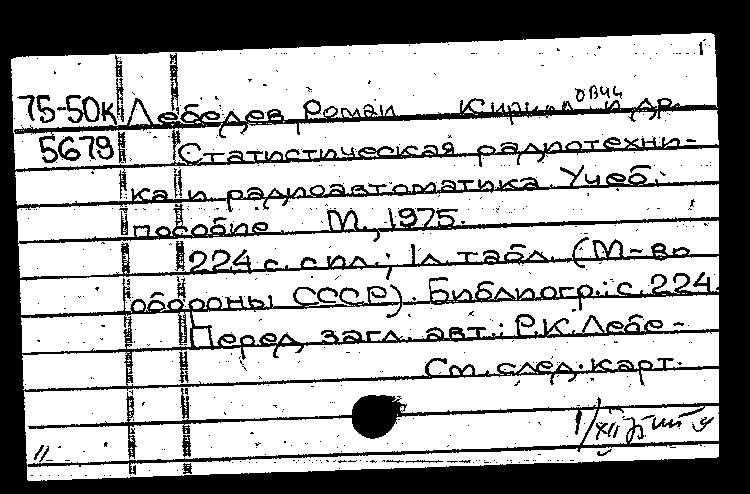 75-50к Лебедев, Роман Кириллович и др.
5679 Статистическая радиотехни-
ка и радиоавтоматика. Учеб.
пособие. М., 1975.
224 с. с ил.; 1 л. табл. (М-во
обороны СССР). Библиогр.: с. 224.
Перед загл. авт.: Р.К. Лебе-
См. след. карт.
1/XII 75